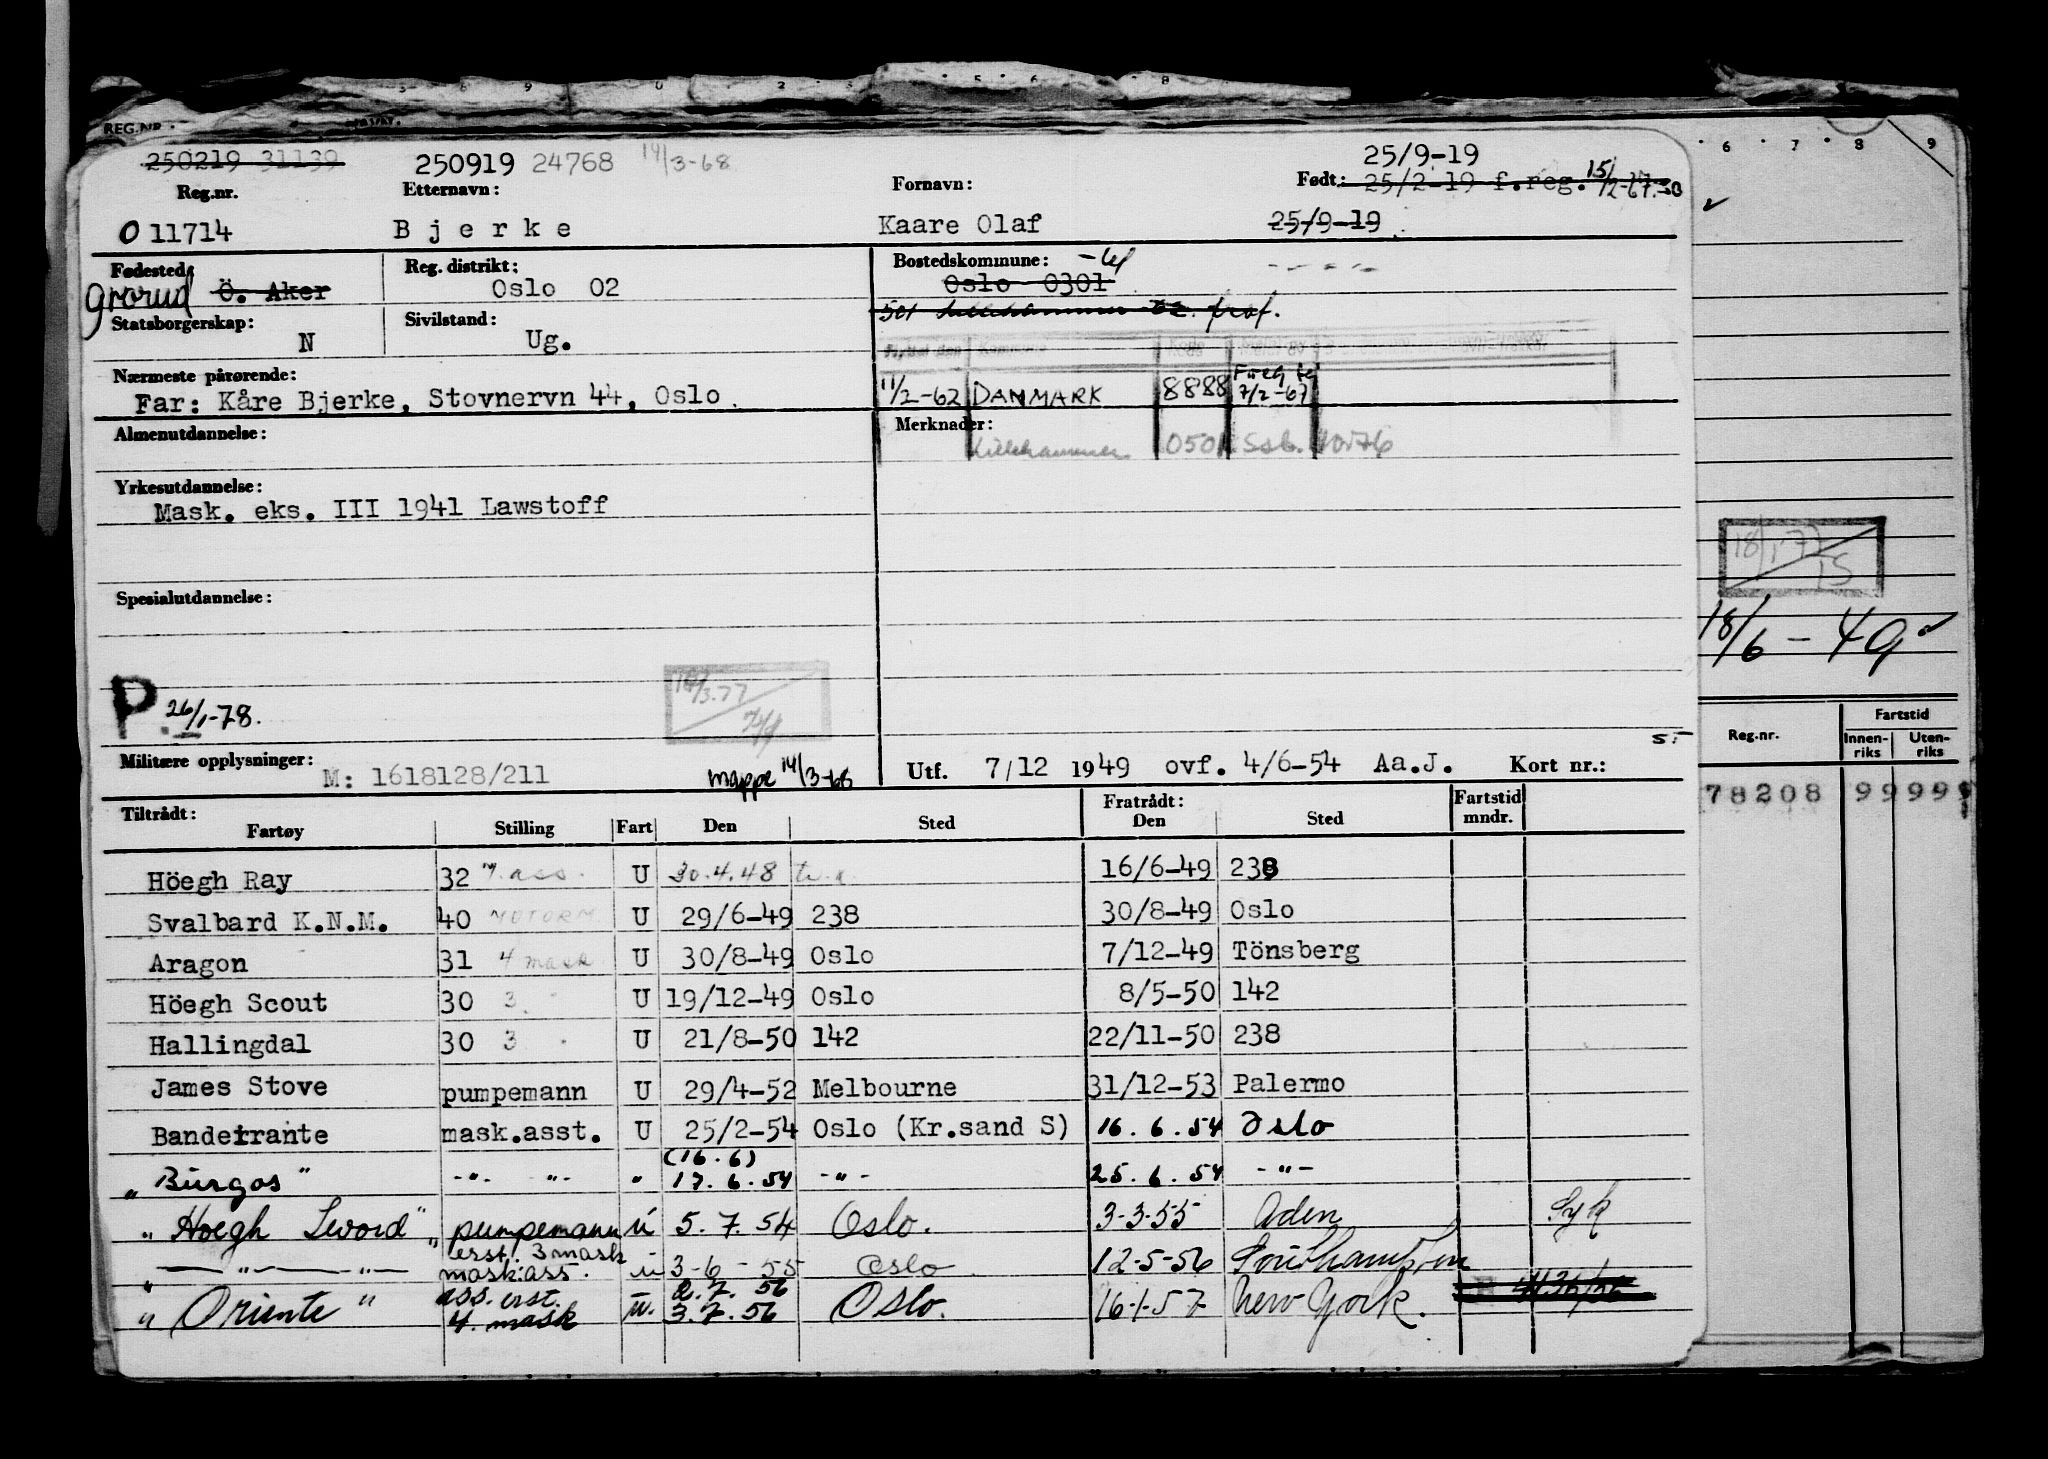 REG.NR.
250219 31139 250919 24768 14/3-68 25/9-19
Reg.nr. Etternavn: Fornavn: Født: 25/2-19 f.reg. 15/12-67
O 11714 Bjerke Kaare Olaf 25/9-19
Fødested: Reg. distrikt: Bostedskommune:
Grorud Ö. Aker Oslo 02 Oslo 0301
Statsborgerskap: Sivilstand: 501 Lillehammer
N Ug.
Nærmeste pårørende:
Far: Kåre Bjerke, Stovnervn 44, Oslo. 11/2-62 DANMARK 8888 7/2-67
Almenutdannelse: Merknader:
Lillehammer 0501 Ssb.
Yrkesutdannelse:
Mask. eks. III 1941 Lawstoff
Spesialutdannelse:
P. 26/1-78.
Militære opplysninger: M: 1618128/211 mappe 14/3-68 Utf. 7/12 1949 ovf. 4/6-54 Aa.J. Kort nr.:
Tiltrådt: Fratrådt: Fartstid
Fartøy Stilling Fart Den Sted Den Sted mndr.
Höegh Ray 32 m.ass. U 30.4.48 16/6-49 238
Svalbard K.N.M. 40 MOTORM U 29/6-49 238 30/8-49 Oslo
Aragon 31 4 mask U 30/8-49 Oslo 7/12-49 Tönsberg
Höegh Scout 30 3 U 19/12-49 Oslo 8/5-50 142
Hallingdal 30 3 U 21/8-50 142 22/11-50 238
James Stove pumpemann U 29/4-52 Melbourne 31/12-53 Palermo
Bandeirante mask.asst. U 25/2-54 Oslo (Kr.sand S) 16.6.54 Oslo
(16.6)
"Burgos" -"- -"- " 17.6.54 -"- 25.6.54 -"-
"Hoegh Sword" pumpemann U 5.7.54 Oslo. 3-3-55 Aden Syk
erst. 3 mask
" -"- -"- mask.ass. u 3-6-55 Oslo 12-5-56 Southampton
ass. erst. 2.7.56
"Oriente" 4. mask u. 3.7.56 Oslo. 16-1-57 New York.
6 7 8 9
18/6-49
Fartstid
Reg.nr. Innen-riks Uten-riks
78208 99 999